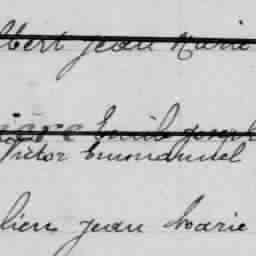 lbert Jean Marie
Pierre Emile Joseph
Victor Emmanuel
lien Jean Marie